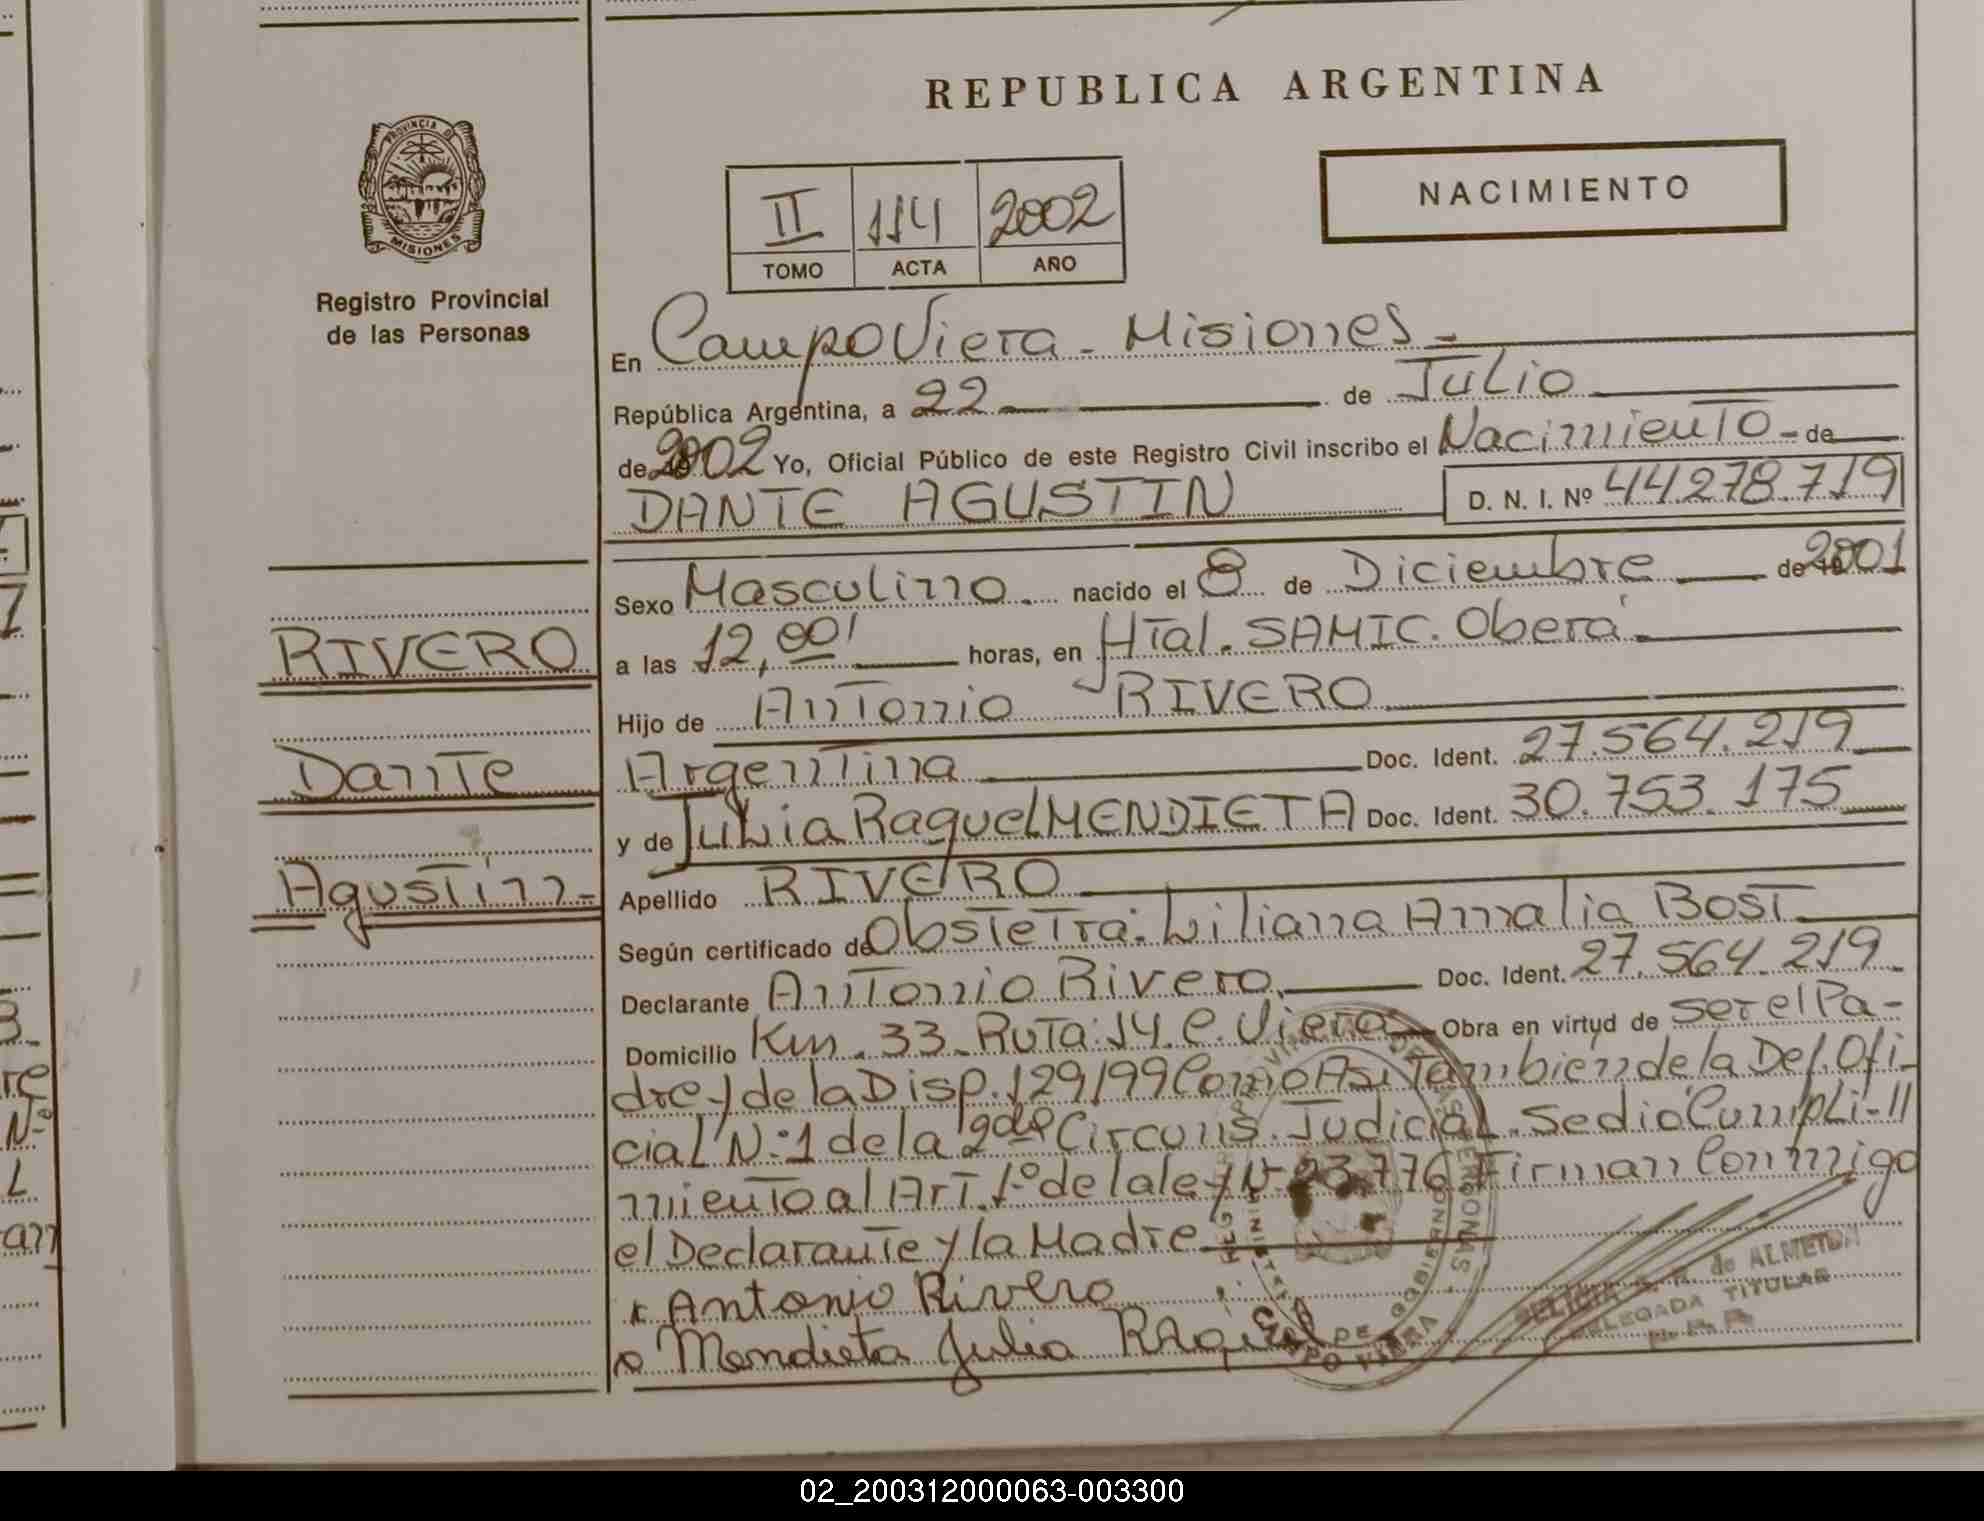 REPUBLICA ARGENTINA
NACIMIENTO
II 114 2002
TOMO ACTA AÑO
PROVINCIA DE
MISIONES
Registro Provincial
de las Personas
RIVERO
Dante
Agustín -
En Campo Viera - Misiones -
República Argentina, a 22 de Julio
de 2002 Yo, Oficial Público de este Registro Civil inscribo el Nacimiento - de
DANTE AGUSTIN D. N. I. Nº 44.278.719
Sexo Masculino. nacido el 8 de Diciembre de 2001
a las 12,00' horas, en Htal. SAMIC. Oberá.
Hijo de Antonio RIVERO
Argentina Doc. Ident. 27.564.219
y de Julia Raquel MENDIETA Doc. Ident. 30.753.175
Apellido RIVERO
Según certificado de Obstetra: Liliana Amalia Bost
Declarante Antonio Rivero. Doc. Ident. 27.564.219
Domicilio Km. 33. Ruta: 14. C. Viera Obra en virtud de ser el Pa-
dre y de la Disp. 129/99 Como Asi Tambien de la Def. Ofi-
cial N:1 de la 2da Circuns. Judicial. Se dio Cumpli-//
miento al Art. 1º de la ley Nº 23.776 Firman Conmigo
el Declarante y la Madre
x Antonio Rivero
x Mendieta Julia RAquel
de ALMEIDA
DELEGADA TITULAR
02_200312000063-003300